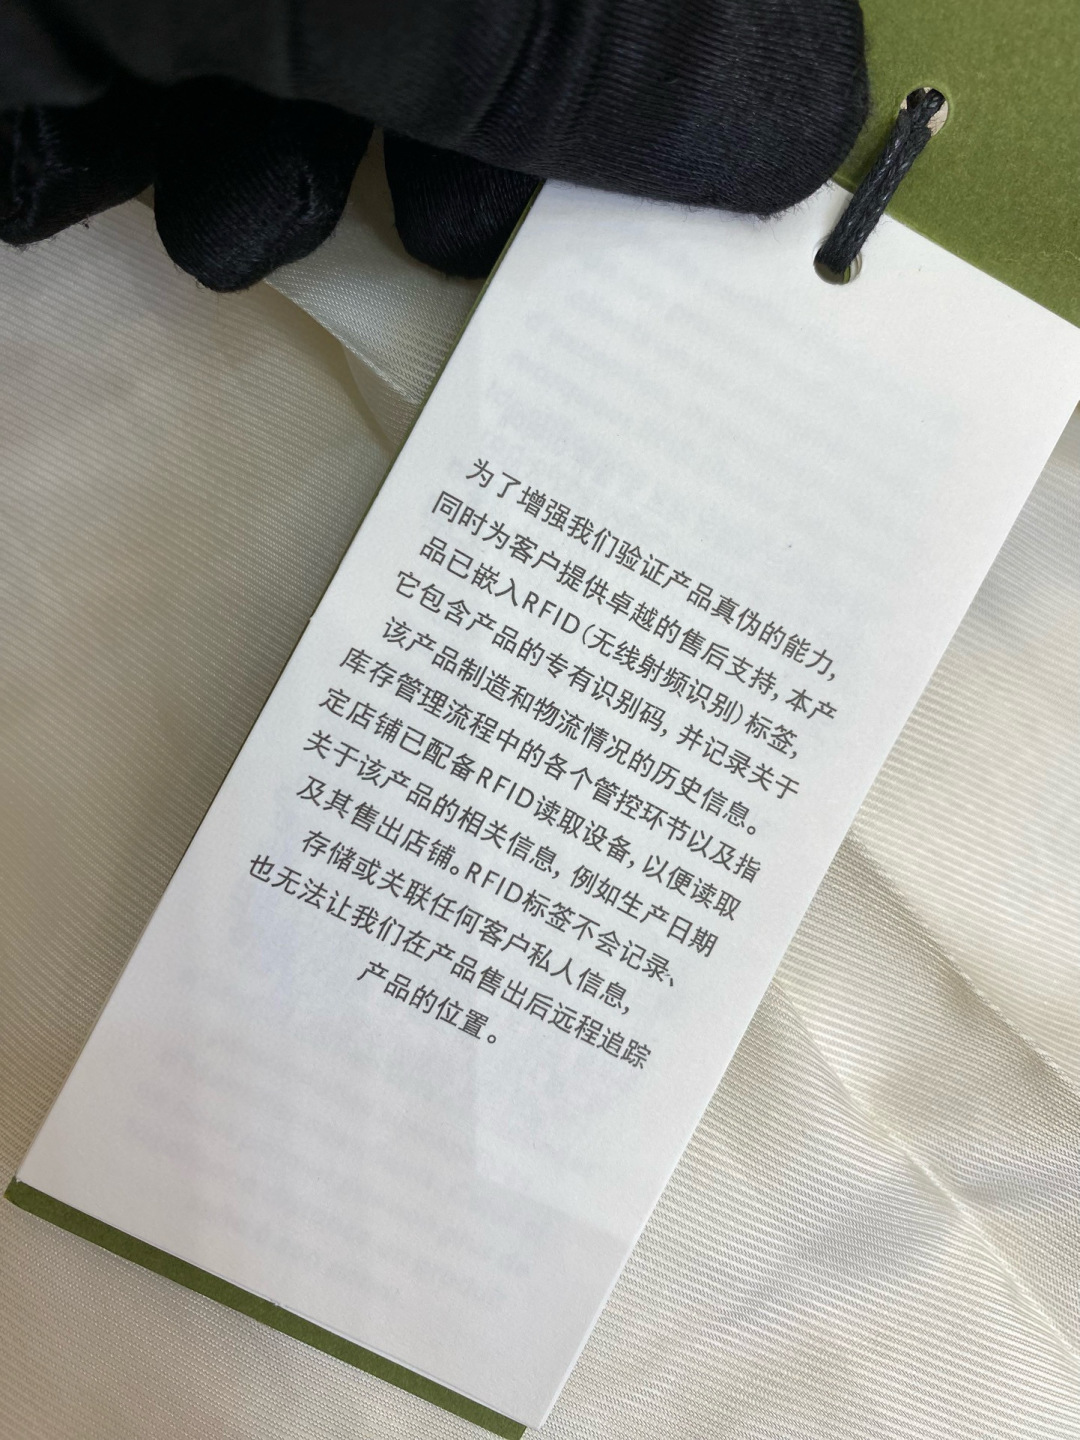 为了增强我们验证产品真伪的能力，
同时为客户提供卓越的售后支持，本产
品已嵌入RFID（无线射频识别）标签，
它包含产品的专有识别码，并记录关于
该产品制造和物流情况的历史信息。
库存管理流程中的各个管控环节以及指
定店铺已配备RFID读取设备，以便读取
关于该产品的相关信息，例如生产日期
及其售出店铺。RFID标签不会记录、
存储或关联任何客户私人信息，
也无法让我们在产品售出后远程追踪
产品的位置。